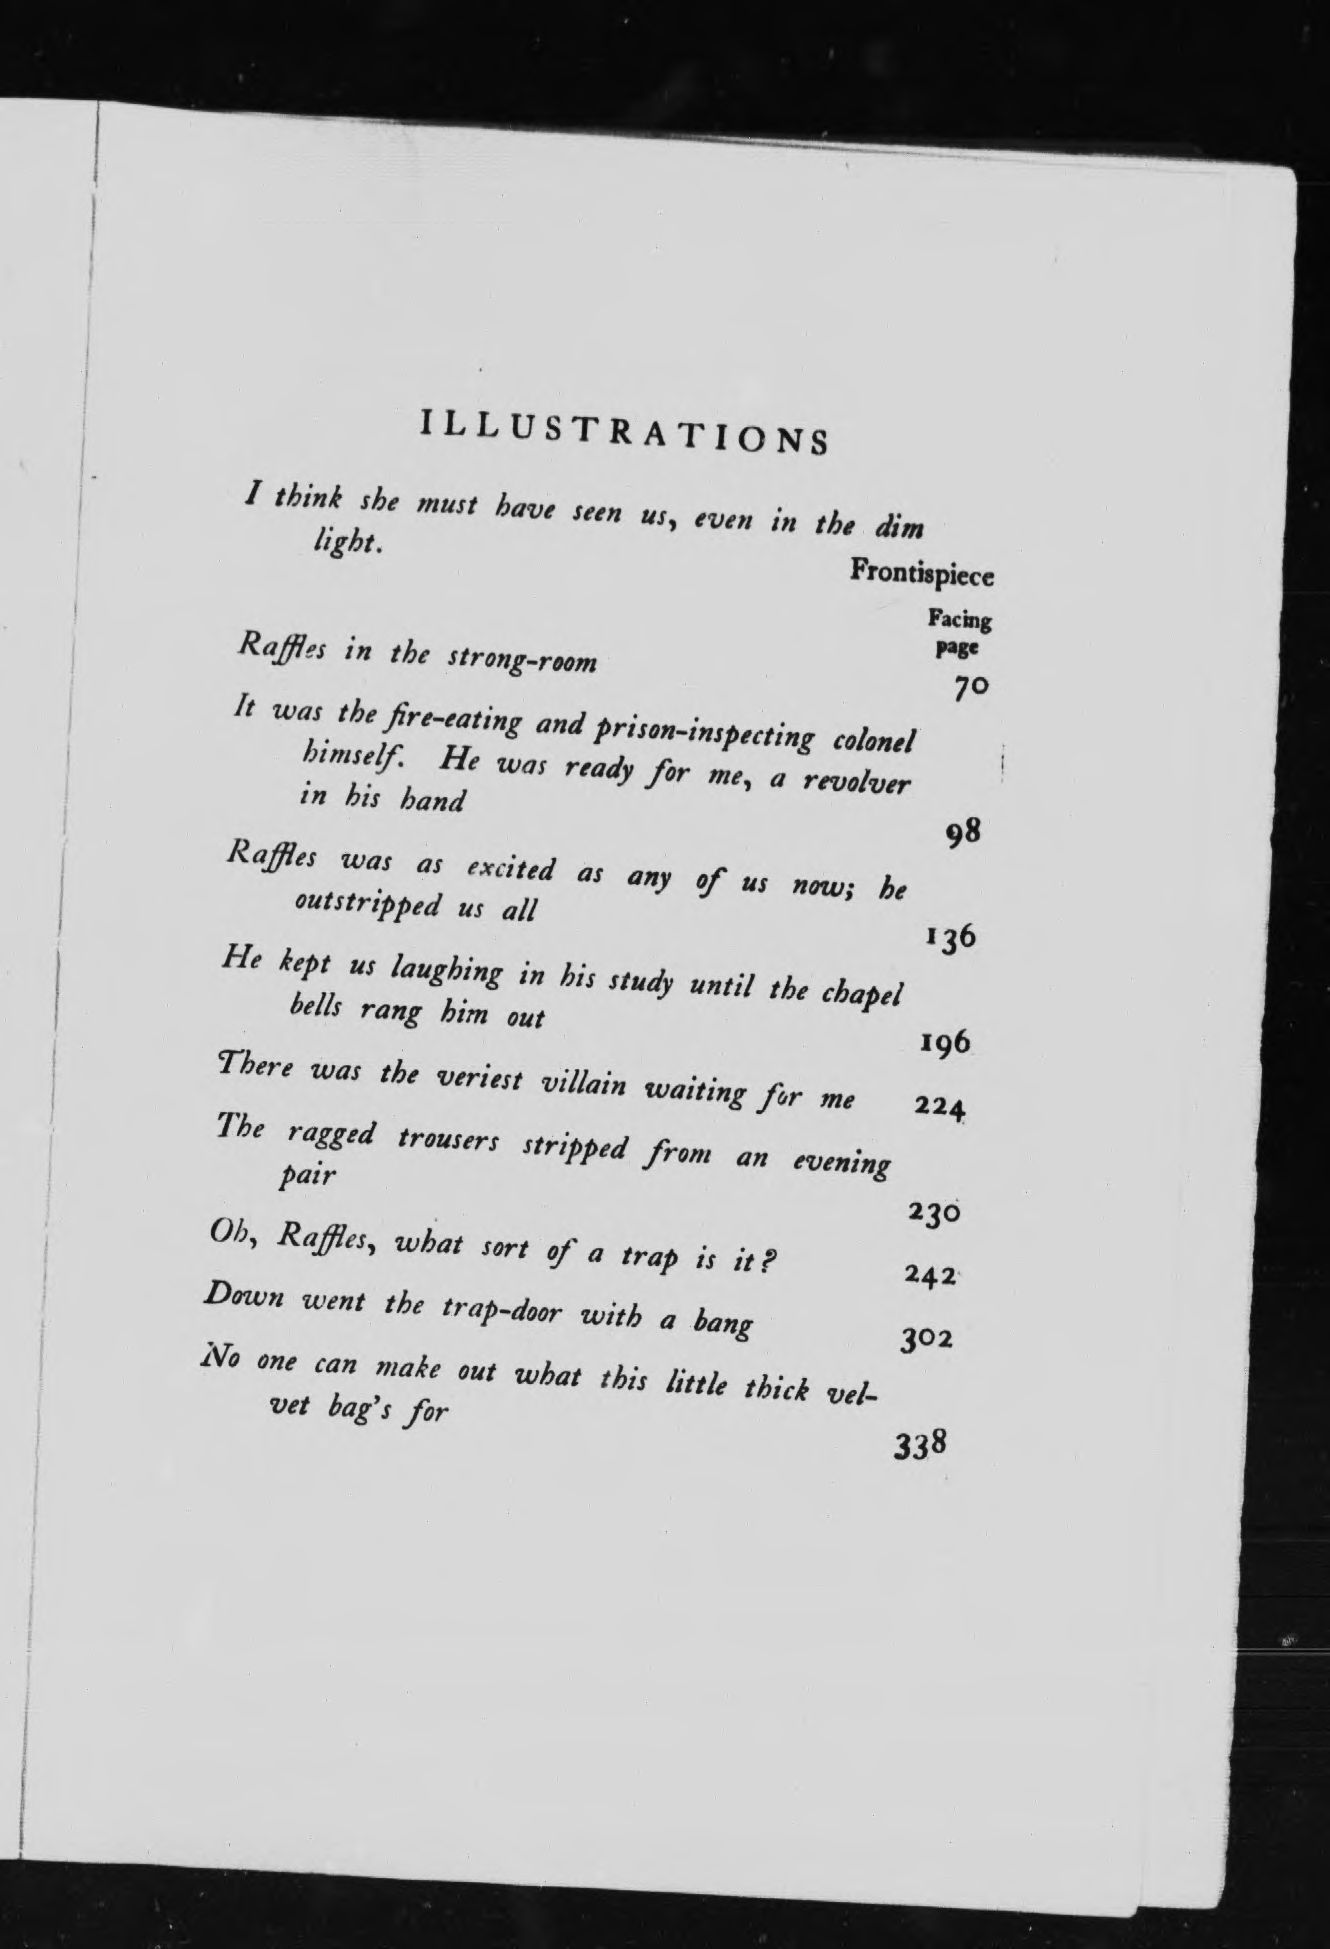 ILLUSTRATIONS
I think she must have seen us, even in the dim
light.
Frontispiece
Facing
page
Raffles in the strong-room 70
It was the fire-eating and prison-inspecting colonel
himself. He was ready for me, a revolver
in his hand 98
Raffles was as excited as any of us now; he
outstripped us all 136
He kept us laughing in his study until the chapel
bells rang him out 196
There was the veriest villain waiting for me 224
The ragged trousers stripped from an evening
pair 230
Oh, Raffles, what sort of a trap is it? 242
Down went the trap-door with a bang 302
No one can make out what this little thick vel-
vet bag's for 338